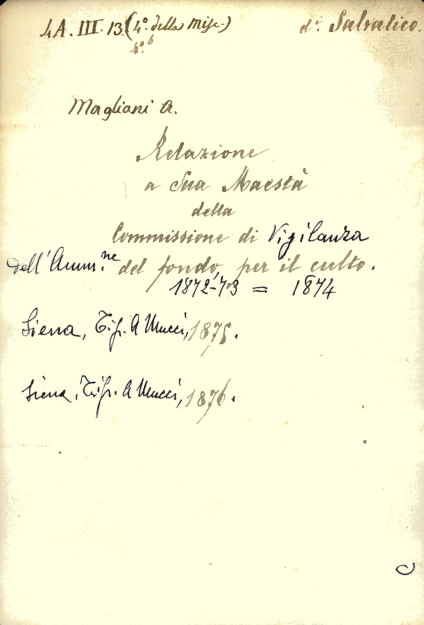 4A. III. 13. (4º della Misc.)
4º.6
dº. Salvatico.
Magliani A.
Relazione
a Sua Maestà
della
Commissione di Vigilanza
dell'Amm.ne del fondo per il culto.
1872-73 = 1874
Siena, Tip. A Mucci, 1875.
Siena, Tip. A Mucci, 1876.